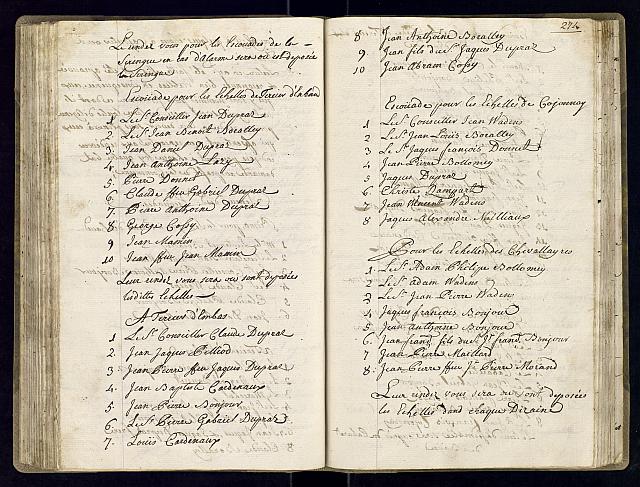 Le rendez vous pour les Escouades de la
Seringue en cas d'alarme sera où est deposée
la Seringue
Escouade pour les Echelles de
1 Le Sr. Conseiller Jean Dupraz
2. Le Sr. Jean Benoit Boralley
3 Jean Daniel Dupraz
4. Jean Anthoine
5. Pierre Donnet
6. Claude ffeu Gabriel Dupraz
7. Pierre Anthoine Dupraz
8. George Cossy
9 Jean Mamin
10 Jean ffeu Jean Mamin
Leur rendez vous sera où sont deposées
lesdittes Echelles
A d'Embas
1 Le Sr. Conseiller Claude Dupraz
2 Jean Jaques
3 Jean Pierre ffeu Jaques Dupraz
4. Jean Baptiste Cardenaux
5. Jean Pierre Bonjour
6. Le Sr. Pierre Gabriel Dupraz
7. Louis Cardenaux
274
8 Jean Anthoine Boralley
9 Jean fils du Sr. Jaques Dupraz
10 Jean Abram Cossy
Escouade pour les Echelles de
1 Le Sr. Conseiller Jean Wadens
2 Le Sr. Jean Louis Boralley
3 Le Sr. Jaques françois Donnet
4 Jean Pierre Bollomey
5 Jaques Dupraz
6. Christe
7 Jean Vincent Wadens
8 Jaques Alexandre
Pour les Echelles des Chevallayres
1. Le Sr. Adam Phelipe Bollomey
2 Le Sr. adam Wadens
3 Le Sr. Jean Pierre Wadens
4 Jaques françois Bonjour
5 Jean anthoine Bonjour
6. Jean franç. fils du Sr. Js. frans. Bonjour
7 Jean Pierre Maillard
8. Jean Pierre ffeu Jn. Pierre Morand
Leur rendez vous sera où sont deposées
les Echelles dans chaque Dizaine